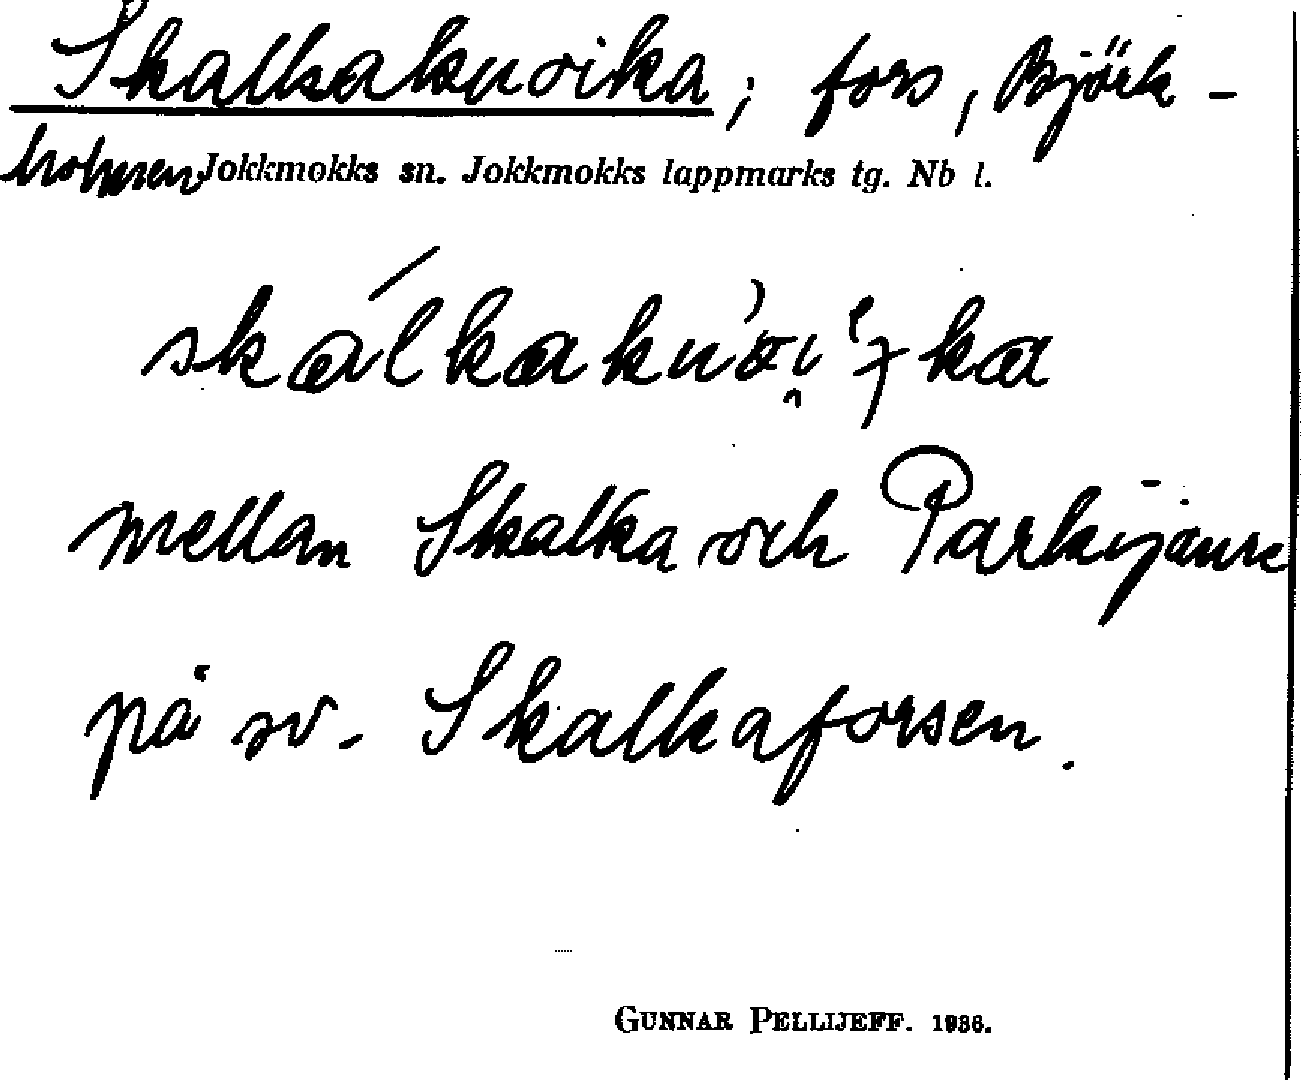 Skalkakuoika, fors, Björk-
holmen Jokkmokks sn. Jokkmokks lappmarks tg. Nb l.
mellan Skalka och Parkijaure
på sv. Skalkaforsen.
GUNNAR PELLIJEFF. 1936.